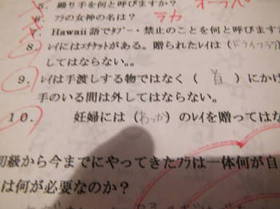 5. 踊り手を何と呼びますか? オーラパ
6. フラの女神の名は? ラカ
7. Hawaii語でタブー・禁止のことを何と呼
8. レイにはエチケットがある。贈られたレイは(
してはならない。
9. レイは手渡しする物ではなく(首)にかけ
手のいる間は外してはならない。
10. 妊婦には(わっか)のレイを贈ってはな
初級から今までにやってきたフラは一体何が自
は何が必要なのか?